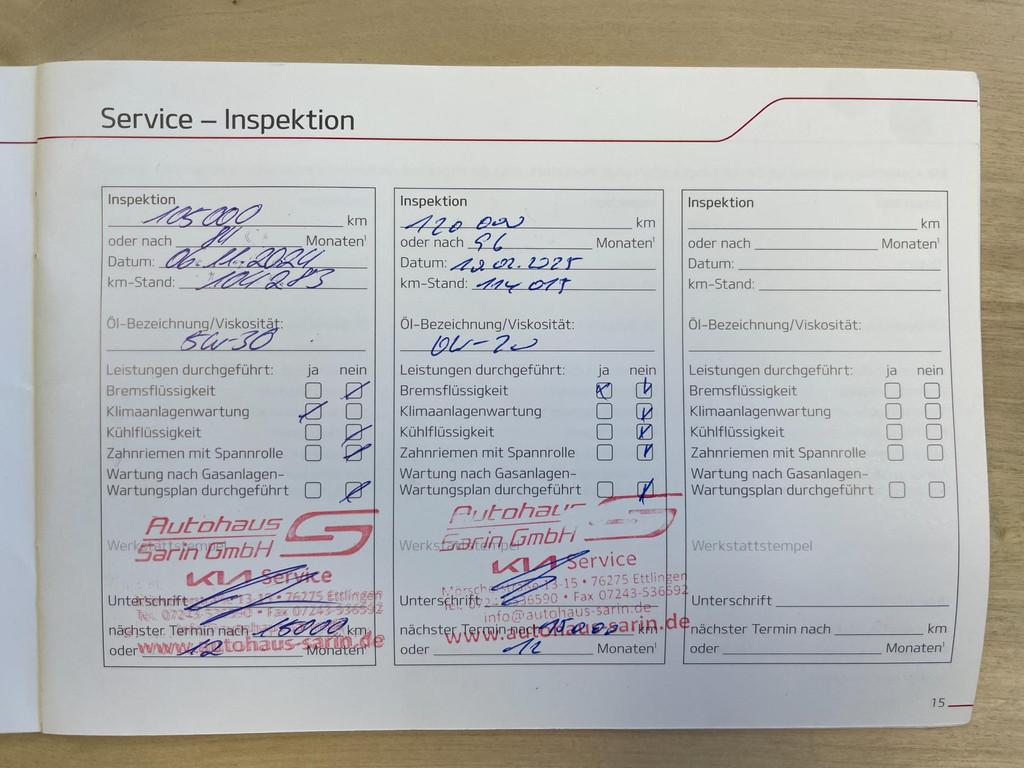 Service – Inspektion
Inspektion
105000 km
oder nach 84 Monaten¹
Datum: 06.11.2024
km-Stand: 104283
Öl-Bezeichnung/Viskosität:
5W-30
Leistungen durchgeführt: ja nein
Bremsflüssigkeit
Klimaanlagenwartung
Kühlflüssigkeit
Zahnriemen mit Spannrolle
Wartung nach Gasanlagen-
Wartungsplan durchgeführt
Autohaus
Sarin GmbH
Werkstattstempel
KIA Service
13-15 • 76275 Ettlingen
Unterschrift
Fax 07243-536592
nächster Termin nach 15000 km
www.autohaus-sarin.de
oder 12 Monaten¹
Inspektion
120 000 km
oder nach 96 Monaten¹
Datum: 2025
km-Stand: 114 015
Öl-Bezeichnung/Viskosität:
0W-20
Leistungen durchgeführt: ja nein
Bremsflüssigkeit
Klimaanlagenwartung
Kühlflüssigkeit
Zahnriemen mit Spannrolle
Wartung nach Gasanlagen-
Wartungsplan durchgeführt
Autohaus
Sarin GmbH
Werkstattstempel
KIA Service
13-15 • 76275 Ettlingen
Unterschrift
536590 • Fax 07243-536592
info@autohaus-sarin.de
nächster Termin nach 15000 km
www.autohaus-sarin.de
oder 12 Monaten¹
Inspektion
km
oder nach Monaten¹
Datum:
km-Stand:
Öl-Bezeichnung/Viskosität:
Leistungen durchgeführt: ja nein
Bremsflüssigkeit
Klimaanlagenwartung
Kühlflüssigkeit
Zahnriemen mit Spannrolle
Wartung nach Gasanlagen-
Wartungsplan durchgeführt
Werkstattstempel
Unterschrift
nächster Termin nach km
oder Monaten¹
15